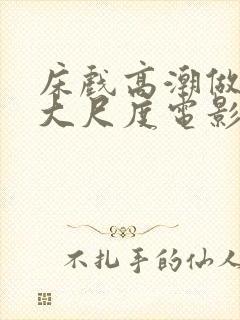 床戲高潮做
大尺度電影
不扎手的仙人